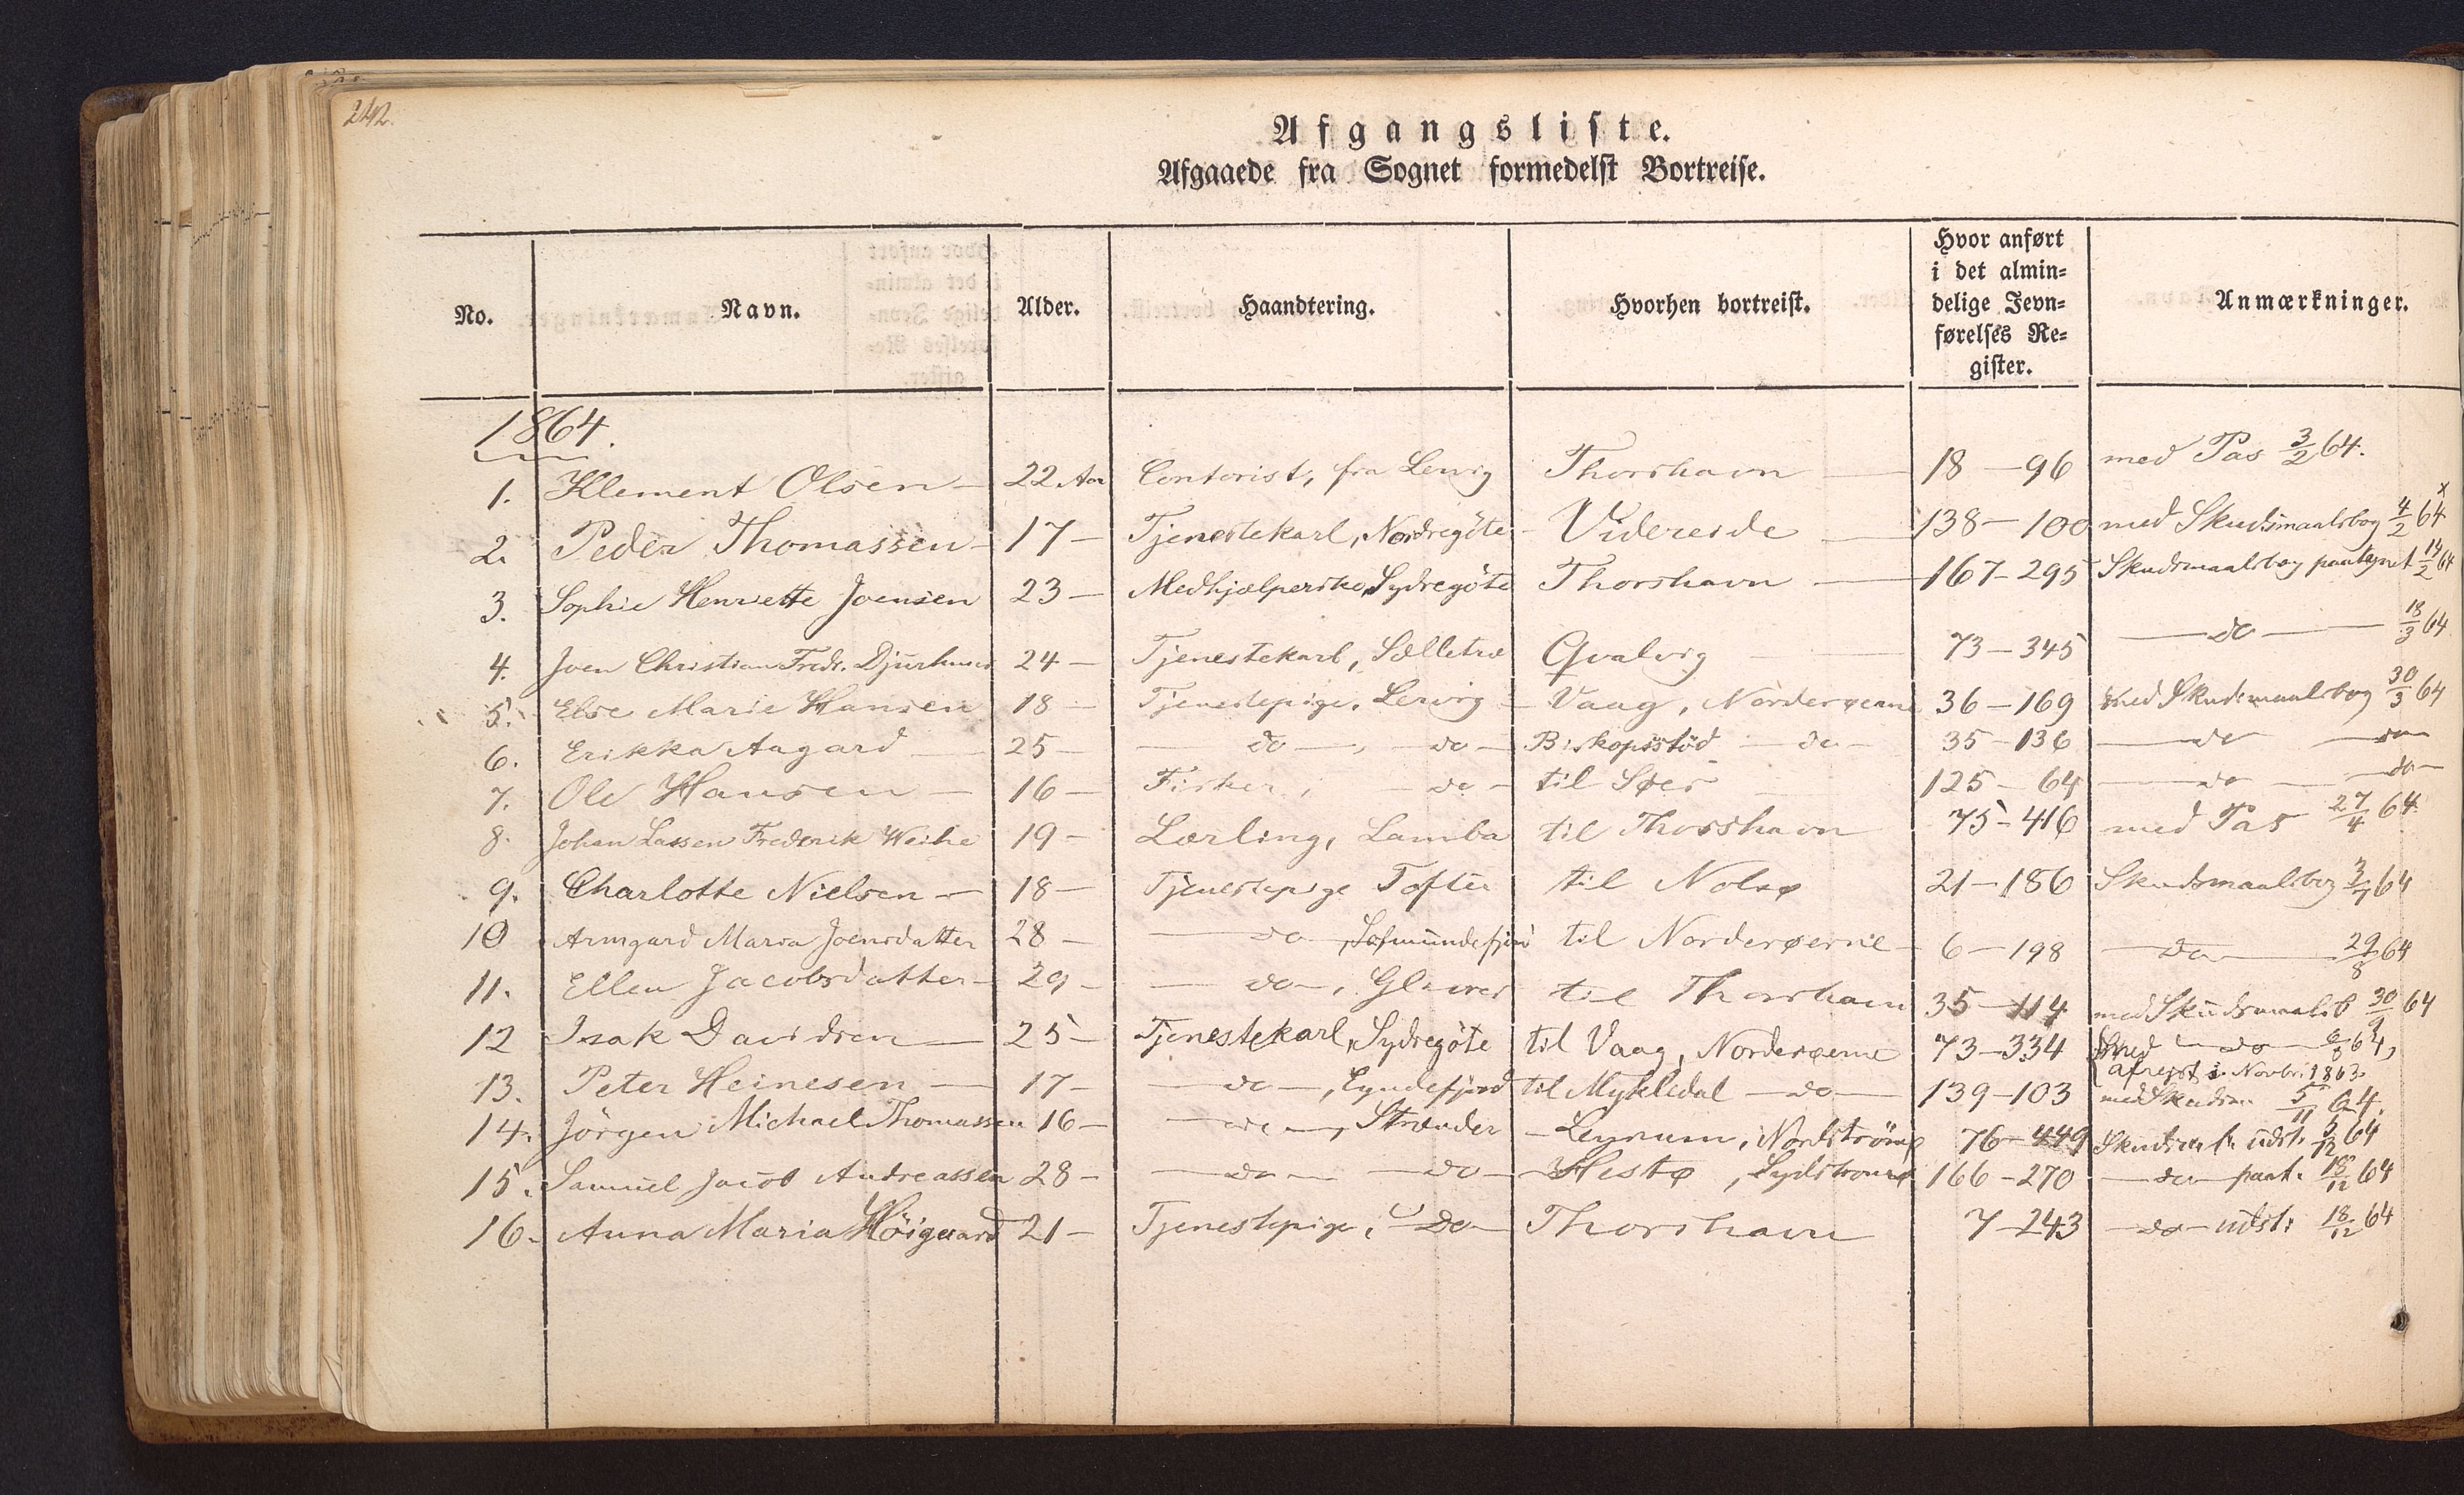 242.
Afgangsliste.
Afgaaede fra Sognet formedelst Bortreise.
No. Navn. Alder. Haandtering. Hvorhen bortreist. Hvor anført i det almin= delige Jevn= førelses Re= gister. Anmærkninger.
1864.
1. Klement Olsen 22 Aar Contorist, fra Lervig Thorshavn 18 - 96 med Pas 3/2 64.
2. Peder Thomassen 17 - Tjenestekarl, Nordregöte - Videreide 138 - 100 med Skudsmaalsbog 4/2 64 x
3. Sophie Henriette Joensen 23 - Medhjælperske, Sydregöte Thorshavn 167 - 295 Skudsmaalsbog paategnet 14/2 64
4. Joen Christian Fredr. Djurhuus 24 - Tjenestekarl, Sælletræ Qvalvig 73 - 345 - do - 18/3 64
5. Else Marie Hansen 18 - Tjenestepige, Lervig - Vaag, Norderøerne 36 - 169 med Skudsmaalsbog 30/3 64
6. Erikka Aagard 25 - - do -, - do - Biskopsstöd - do - 35 - 136 - do - do -
7. Ole Hansen - 16 - Fisker, - do - til 125 - 64 - do - do -
8. Johan Lassen Frederik Weihe 19 - Lærling, Lamba til Thorshavn 75 - 416 med Pas 27/4 64
9. Charlotte Nielsen - 18 - Tjenestepige Tofter til Nolsø 21 - 186 Skudsmaalsbog 3/7 64
10 Armgard Maria Joensdatter 28 - - do -, til Norderøerne - 6 - 198 - do - 29/8 64
11. Ellen Jacobsdatter - 29 - - do -, Glivrer til Thorshavn 35 - 114 med Skudsmaalsb 30/9 64
12 Isak Davidsen - 25 - Tjenestekarl, Sydregöte til Vaag, Norderøerne 73 - 334 med - do - 64,
afrejst i Novbr. 1863.
13. Peter Heinesen - 17 - - do -, Fundefjord til Mykledal - do - 139 - 103 med Skudsm. 5/11 64.
14. Jörgen Michael Thomassen 16 - - do -, Strænder - Leynum, Nordströmø 76 - 449 udst. 5/12 64
15. Samuel Jacob Andreassen 28 - - do - - do - Hestø, Sydstromø 166 - 270 - do - paat. 18/12 64
16. Anna Maria Höigaard 21 - Tjenestepige, - do - Thorshavn 7 - 243 - do - udst. 18/12 64